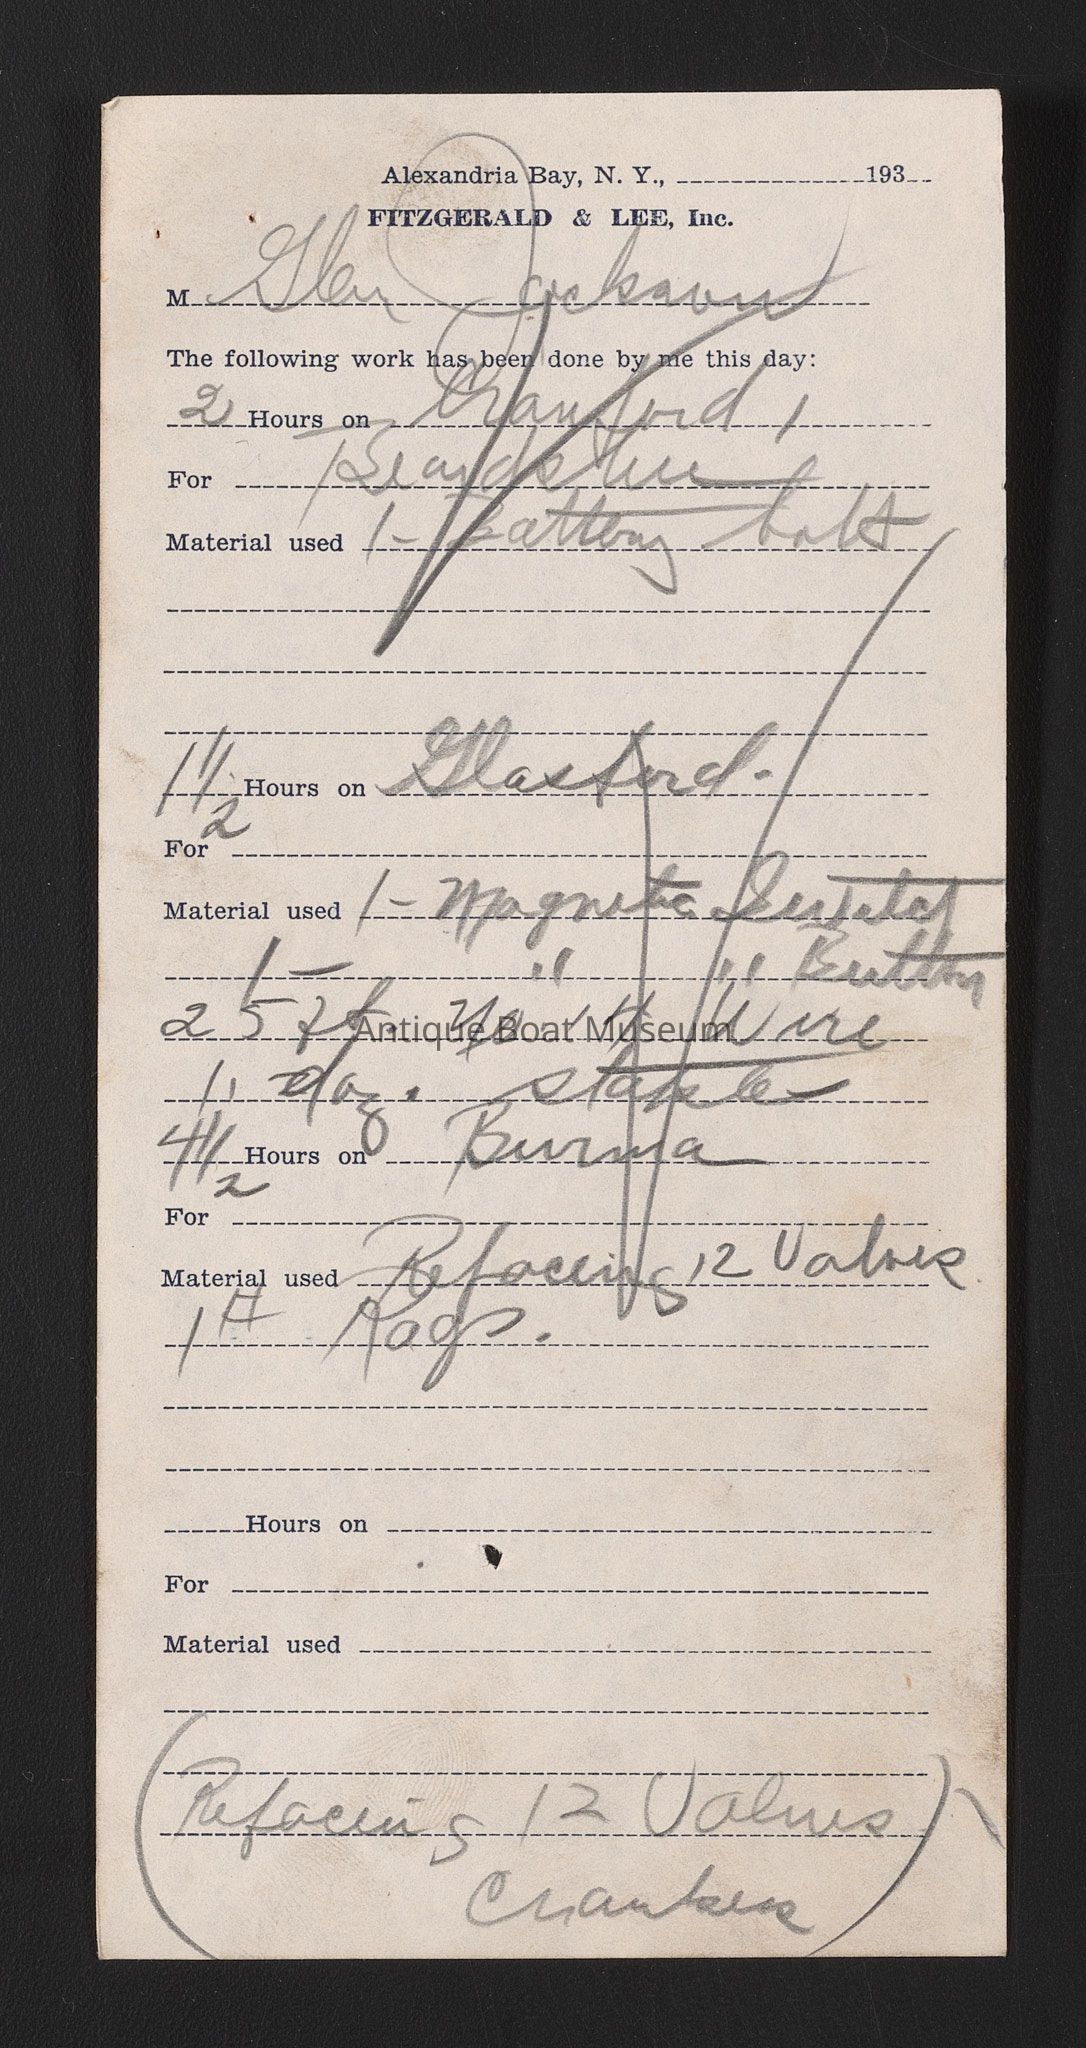 Alexandria Bay, N. Y., 193
FITZGERALD & LEE, Inc.
M Glen Jackson
The following work has been done by me this day:
2 Hours on Cranford
For
Material used 1 - Battery bolt
1 1/2 Hours on Glasford.
For
Material used 1 - Magneto
1 - " " Button
25 ft. No 14 Wire
1 doz. staples
4 1/2 Hours on Burma
For
Material used Refacing 12 Valves
1 # Rags.
Hours on
For
Material used
(Refacing 12 Valves)
Antique Boat Museum